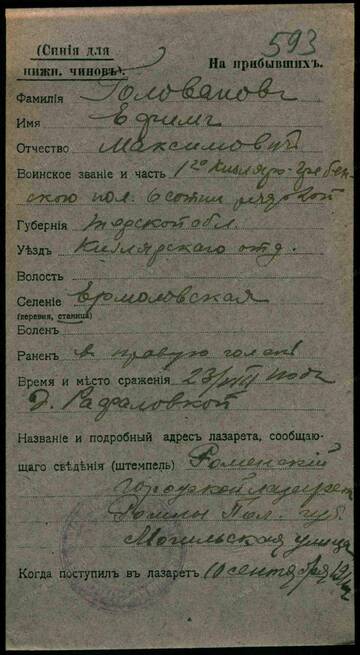 593
(Синія для
нижн. чиновъ).
На прибывшихъ.
Фамилія Головановъ
Имя Ефимъ
Отчество Максимовичъ
Воинское званіе и часть 1го Кизляро-Гребен-
скою пол. 6 сотни рядовой
Губернія Терской обл.
Уѣздъ Кизлярскаго отд.
Волость
Селеніе Ермоловская
(деревня, станица)
Боленъ
Раненъ в правую голень
Время и мѣсто сраженія 23/VIII подъ
д. Рафаловкой
Названіе и подробный адресъ лазарета, сообщаю-
щаго свѣдѣнія (штемпель) Роменскій
городской лазаретъ
Ромны Пол. губ.
Могильская улица
Когда поступилъ въ лазаретъ 10 сентября